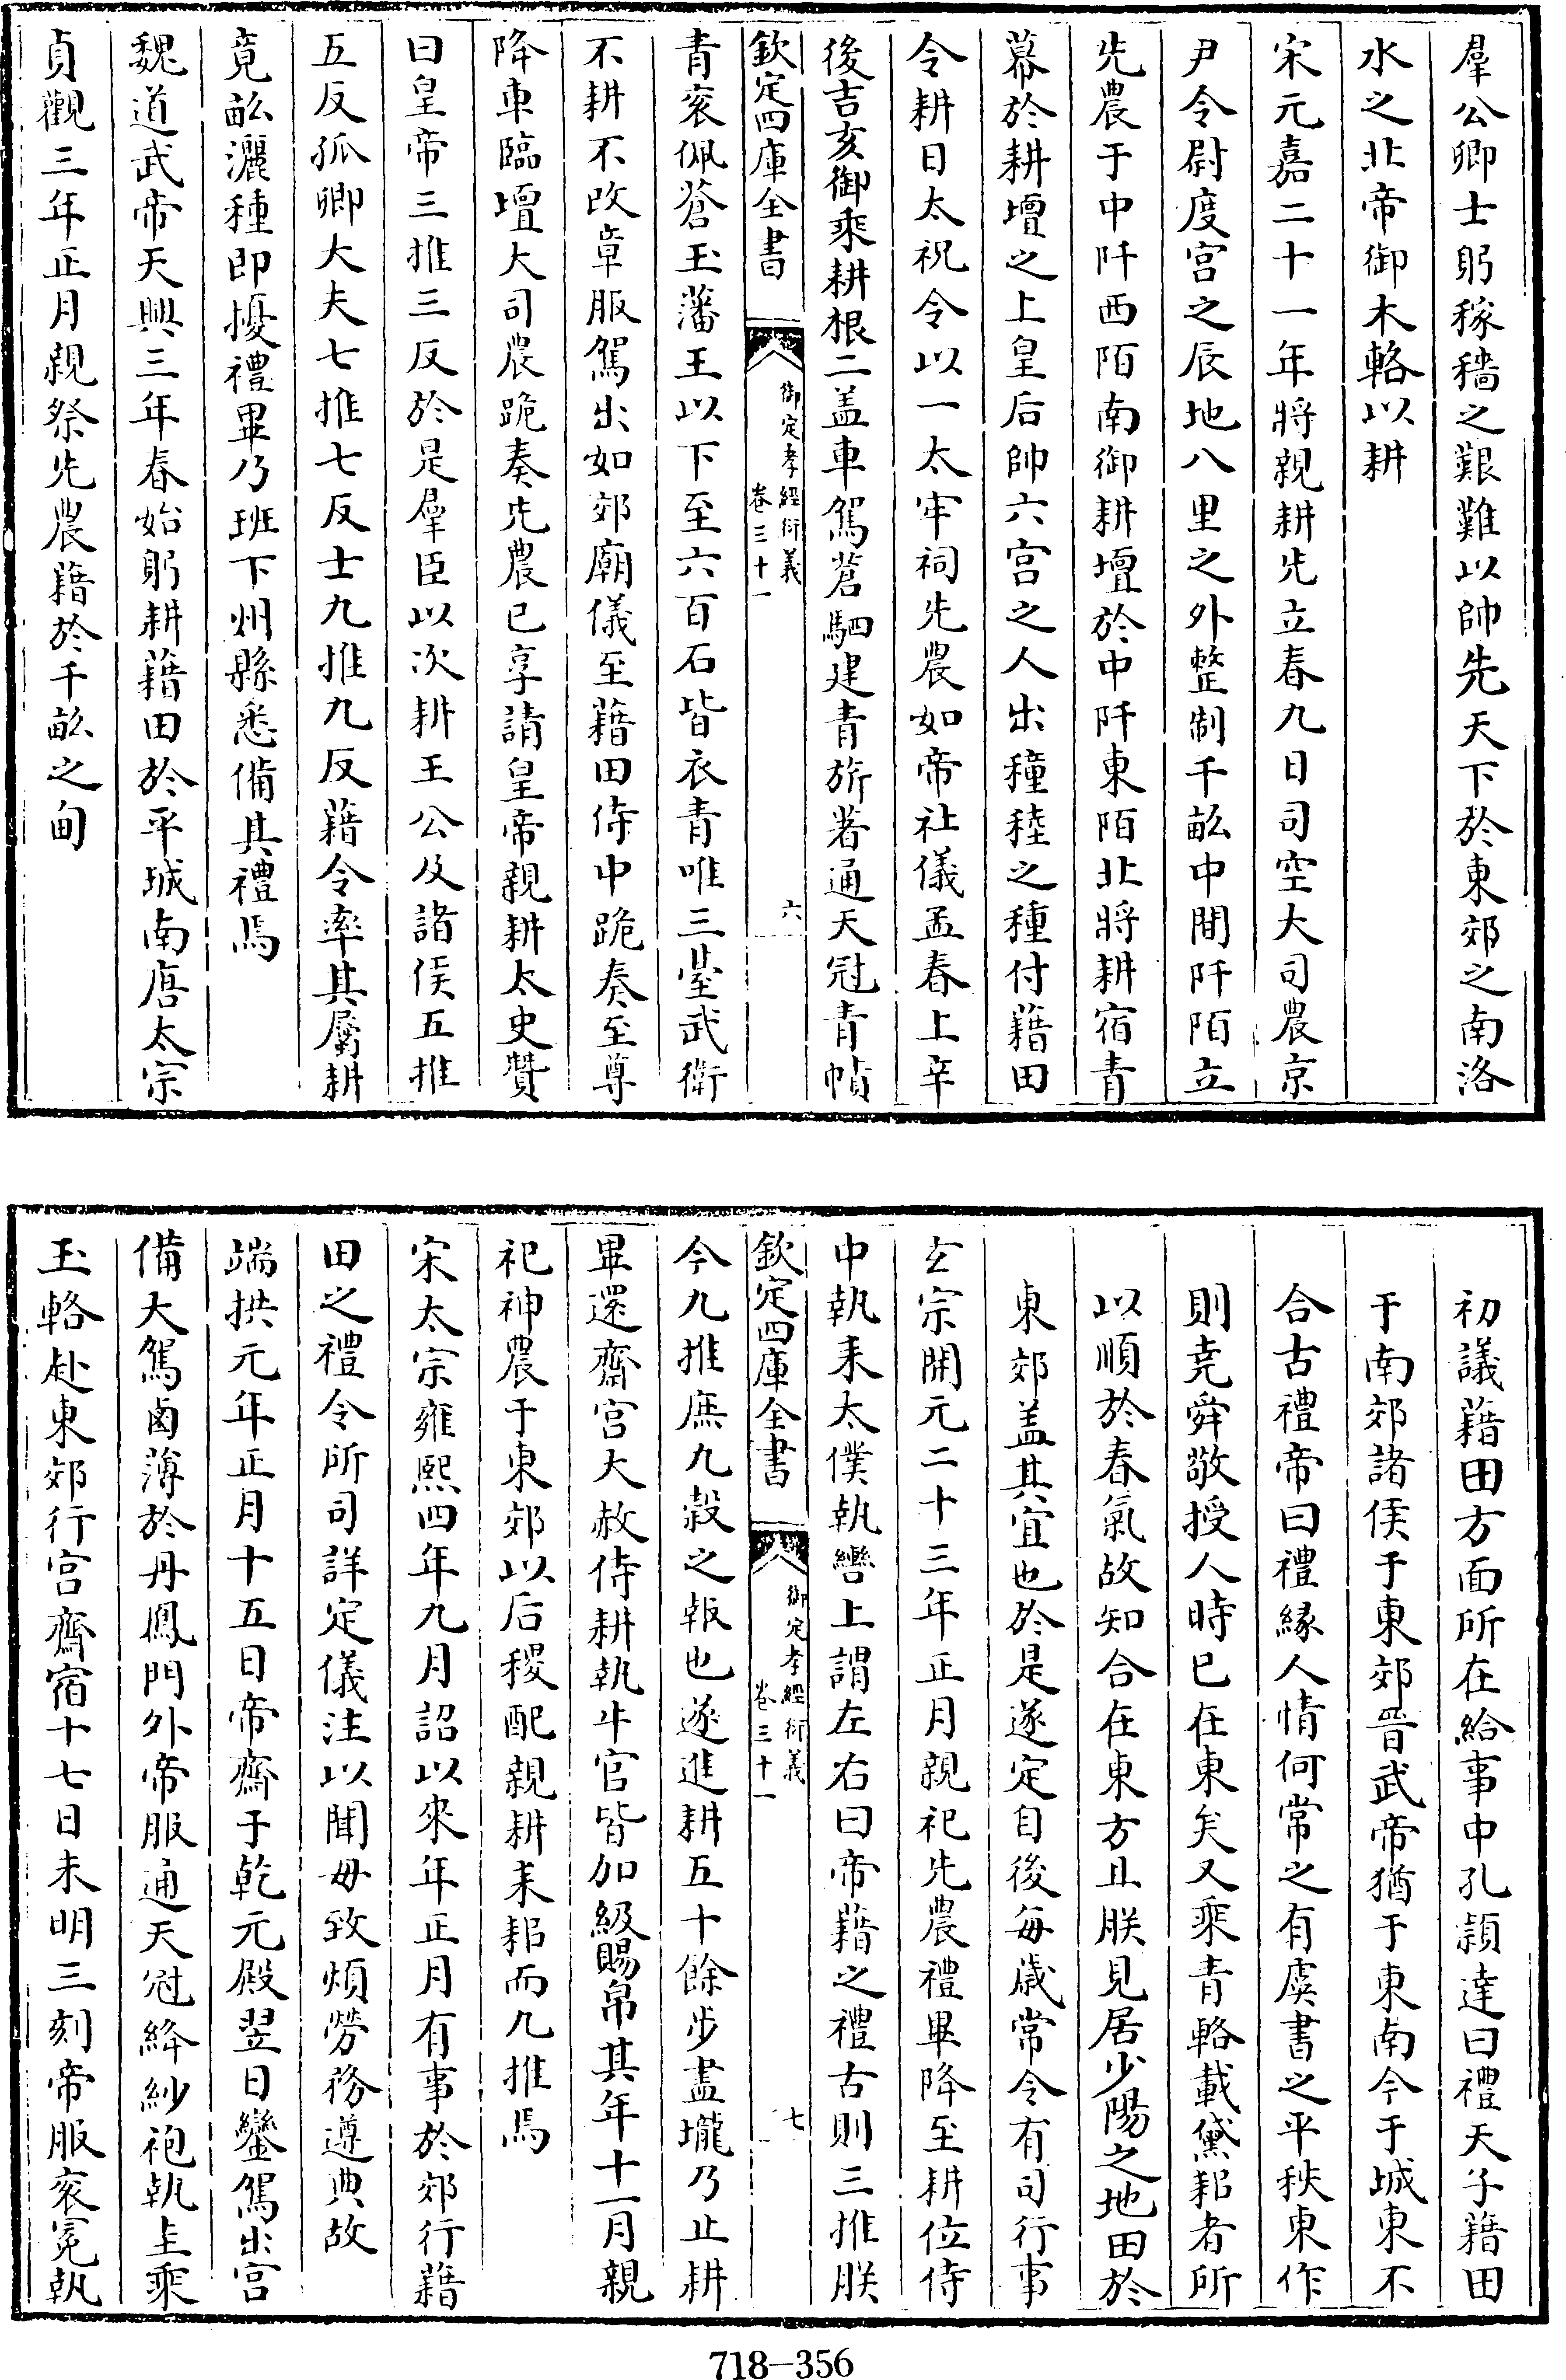 羣公卿士躬稼穡之艱難以帥先天下於東郊之南洛
水之北帝御木輅以耕
宋元嘉二十一年將親耕先立春九日司空大司農京
尹令尉度宫之辰地八里之外整制千畝中間阡陌立
先農于中阡西陌南御耕壇於中阡東陌北將耕宿青
幕於耕壇之上皇后帥六宫之人出穜稑之種付藉田
令耕日太祝令以一太牢祠先農如帝社儀孟春上辛
後吉亥御乘耕根二盖車駕蒼駟建青旂著通天冠青幘
欽定四庫全書
御定孝經衍義
卷三十一
六
青衮佩蒼玉藩王以下至六百石皆衣青唯三臺武衛
不耕不改章服駕出如郊廟儀至藉田侍中跪奏至尊
降車臨壇大司農跪奏先農已享請皇帝親耕太史贊
曰皇帝三推三反於是羣臣以次耕王公及諸侯五推
五反孤卿大夫七推七反士九推九反藉令率其屬耕
竟畝灑種即擾禮畢乃班下州縣悉備其禮焉
魏道武帝天興三年春始躬耕藉田於平城南唐太宗
貞觀三年正月親祭先農藉於千畝之甸
初議藉田方面所在給事中孔頴達曰禮天子藉田
于南郊諸侯于東郊晉武帝猶于東南今于城東不
合古禮帝曰禮緣人情何常之有虞書之平秩東作
則堯舜敬授人時已在東矣又乘青輅載黛耜者所
以順於春氣故知合在東方且朕見居少陽之地田於
東郊盖其宜也於是遂定自後每歲常令有司行事
玄宗開元二十三年正月親祀先農禮畢降至耕位侍
中執耒太僕執轡上謂左右曰帝藉之禮古則三推朕
欽定四庫全書
御定孝經衍義
卷三十一
七
今九推庶九穀之報也遂進耕五十餘步盡壠乃止耕
畢還齋宫大赦侍耕執牛官皆加級賜帛其年十一月親
祀神農于東郊以后稷配親耕耒耜而九推焉
宋太宗雍熙四年九月詔以來年正月有事於郊行藉
田之禮令所司詳定儀注以聞毋致煩勞務遵典故
端拱元年正月十五日帝齋于乾元殿翌日鑾駕出宫
備大駕鹵薄於丹鳳門外帝服通天冠絳紗袍執圭乘
玉輅赴東郊行宫齋宿十七日未明三刻帝服衮冕執
718-356